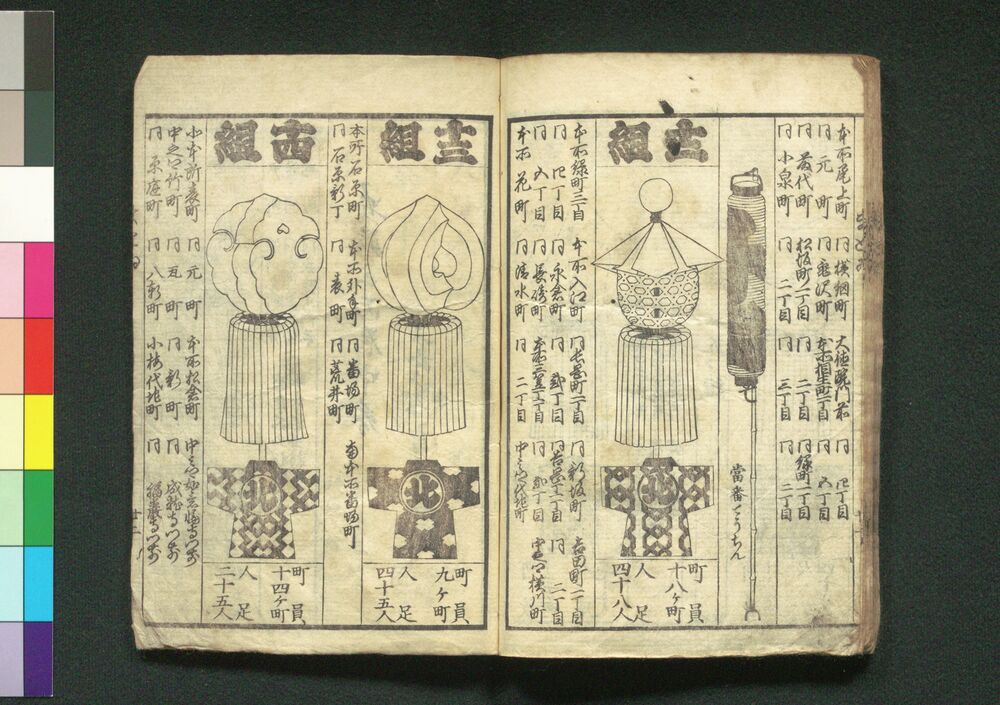 本所尾上町
同 元町
同 藤代町
同 小泉町
同 横網町
同 亀沢町
松坂町一丁目
同 二丁目
大徳院門前
本所相生町一丁目
同 二丁目
同 三丁目
同 四丁目
同 五丁目
同 緑町一丁目
同 二丁目
當番てうちん
十二組
町員
十八ヶ町
人足
四十八人
本所緑町三丁目
同 四丁目
同 五丁目
本所花町
本所入江町
同 永倉町
同 長崎町
同 清水町
同 長岡町一丁目
同 二丁目
本所三笠町一丁目
同 二丁目
同 新坂町
同 吉岡町一丁目
同 二丁目
吉田町一丁目
同 二丁目
中之郷横川町
十三組
町員
九ヶ町
人足
四十五人
本所石原町
同 石原新丁
本所外手町
同 表町
同 番場町
同 荒井町
南本所番場町
十四組
町員
十四ヶ町
人足
二十五人
北本所表町
中之郷竹町
同 原庭町
同 元町
同 瓦町
同 八軒町
本所松倉町
同 新町
小梅代地町
中之郷如意輪寺門前
同 成就寺門前
同 福嚴寺門前